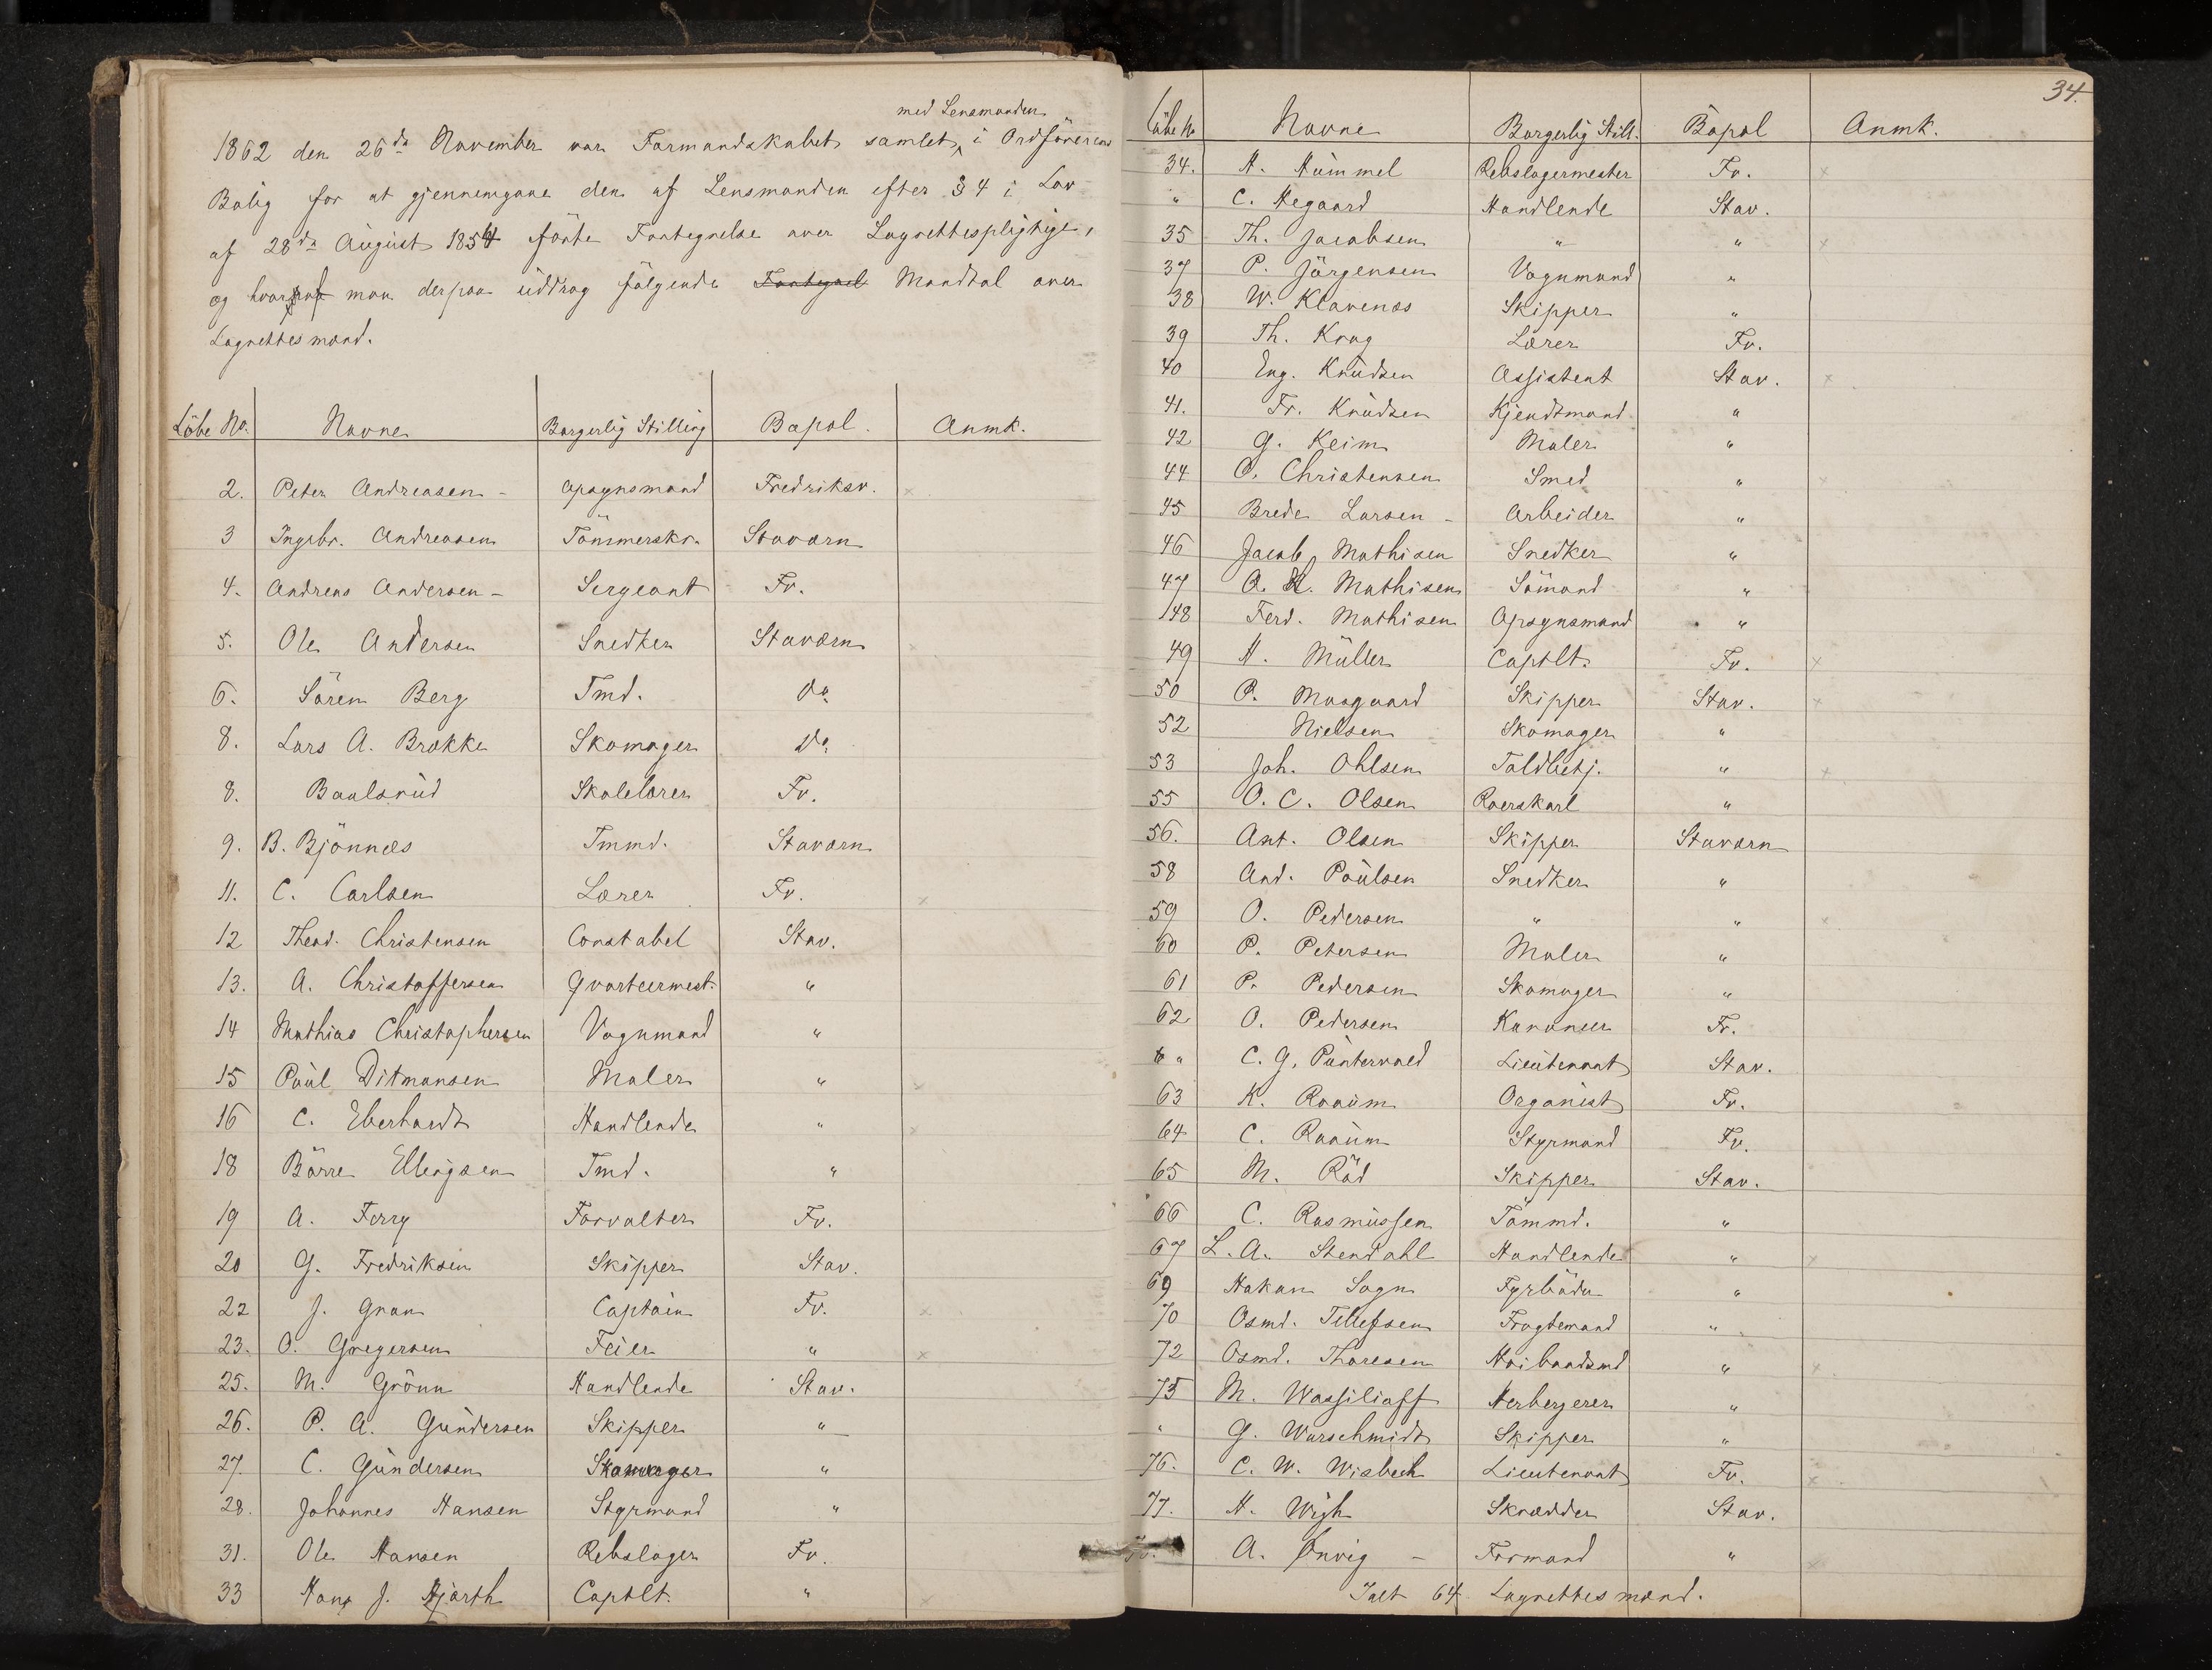 med Lensmanden
1862 den 26de November var Formandskabet samlet, i Ordförerens
Bolig for at gjennemgaae den af Lensmanden efter § 4 i Lov
af 28de August 1854 förte Fortegnelse over Lagrettespligtige,
og man derpaa uddrog fölgende Fortegnel Mandtal over
Lagrettesmænd.
Löbe No. Navne Borgerlig Stilling Bopæl. Anmk.
2. Peter Andreasen - Opsynsmand Fredriksv. x
3 Ingebr. Andreasen Tömmerskr. Staværn
4. Andreas Andersen - Sergeant Fv.
5. Ole Andersen Snedker Staværn x
6. Sören Berg Tmd. Do
8. Lars A. Brække Skomager Do
8. Baalsrud Skolelærer Fv.
9. B. Bjönnes Tmmd. Staværn
11. C. Carlsen Lærer Fv. x
12 Theod. Christensen Constabel Stav.
13. A. Christoffersen Qvarteermest. "
14 Mathias Christophersen Vognmand "
15 Paul Ditmansen Maler " x
16 C. Eberhardt Handlende " x
18 Börre Ellingsen Tmd. "
19 A. Ferry Forvalter Fv.
20 G. Fredriksen Skipper Stav.
22 J. Gran Captain Fv. x
23. O. Gregersen Feier " x
25. M. Grönn Handlende Stav.
26. P. A. Gundersen Skipper "
27. C. Gundersen Skomager "
28. Johannes Hansen Styrmand "
31. Ole Hansen Rebslager Fv.
33 Hans J. Hjorth Captlt. " x
34.
Löbe No Navne Borgerlig Still. Bopæl Anmk.
34. H. Hummel Rebslagermester Fv. x
" C. Hegaard Handlende Stav.
35 Th. Jacobsen " " x
37 P. Jörgensen Vognmand "
38 W. Klavenæs Skipper "
39 Th. Krag Lærer Fv.
40 Eng. Knudsen Assistent Stav. x
41. Fr. Knudsen Kjendtmand "
42 G. Keim Maler "
44 O. Christensen Smed " x
45 Brede Larsen - Arbeider "
46 Jacob Mathisen Snedker "
47 A. H. Mathisen Sömand "
48 Ferd. Mathisen Opsynsmand "
49 H. Müller Captlt. Fv. x
50 P. Moagaard Skipper Stav. x
52 Nielsen Skomager "
53 Joh. Ohlsen Toldbetj. " x
55 O. C. Olsen Roerskarl "
56. Ant. Olsen Skipper Staværn
58 And. Poulsen Snedker "
59 O. Pedersen " " x
60 P. Petersen Maler "
61 P. Pedersen Skomager "
62 O. Pedersen Kanoneer Fv.
" C. G. Puntervold Lieutenant Stav.
63 K. Raaum Organist Fv.
64 C. Raaum Styrmand Fv.
65 M. Röd Skipper Stav.
66 C. Rasmussen Tömmd. "
67 L. A. Stendahl Handlende " x
69 Hakan Sogn Fyrböder "
70 Osmd. Tellefsen Fragtemand "
72 Osmd. Thoresen Høibaadsmd " x
75 M. Wassiliaff Herbergerer "
" G. Warschmidt Skipper "
76. C. W. Wisbech Lieutenant Fv. x
77. H. Wigh Skrædder Stav.
A. Önvig - Formand " x
Ialt 64 Lagrettesmænd.